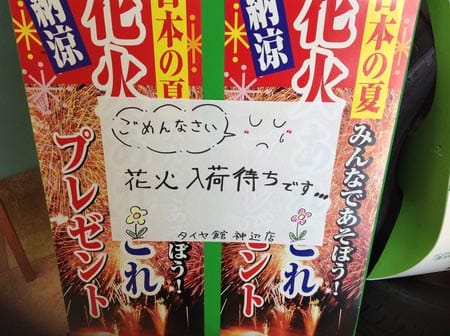 日本の夏
納涼
花火
みんなであそぼう!
プレゼント
これ
ごめんなさい
花火入荷待ちです...
タイヤ館 神辺店
日本の夏
納涼
花火
みんなであそぼう!
プレゼント
これ